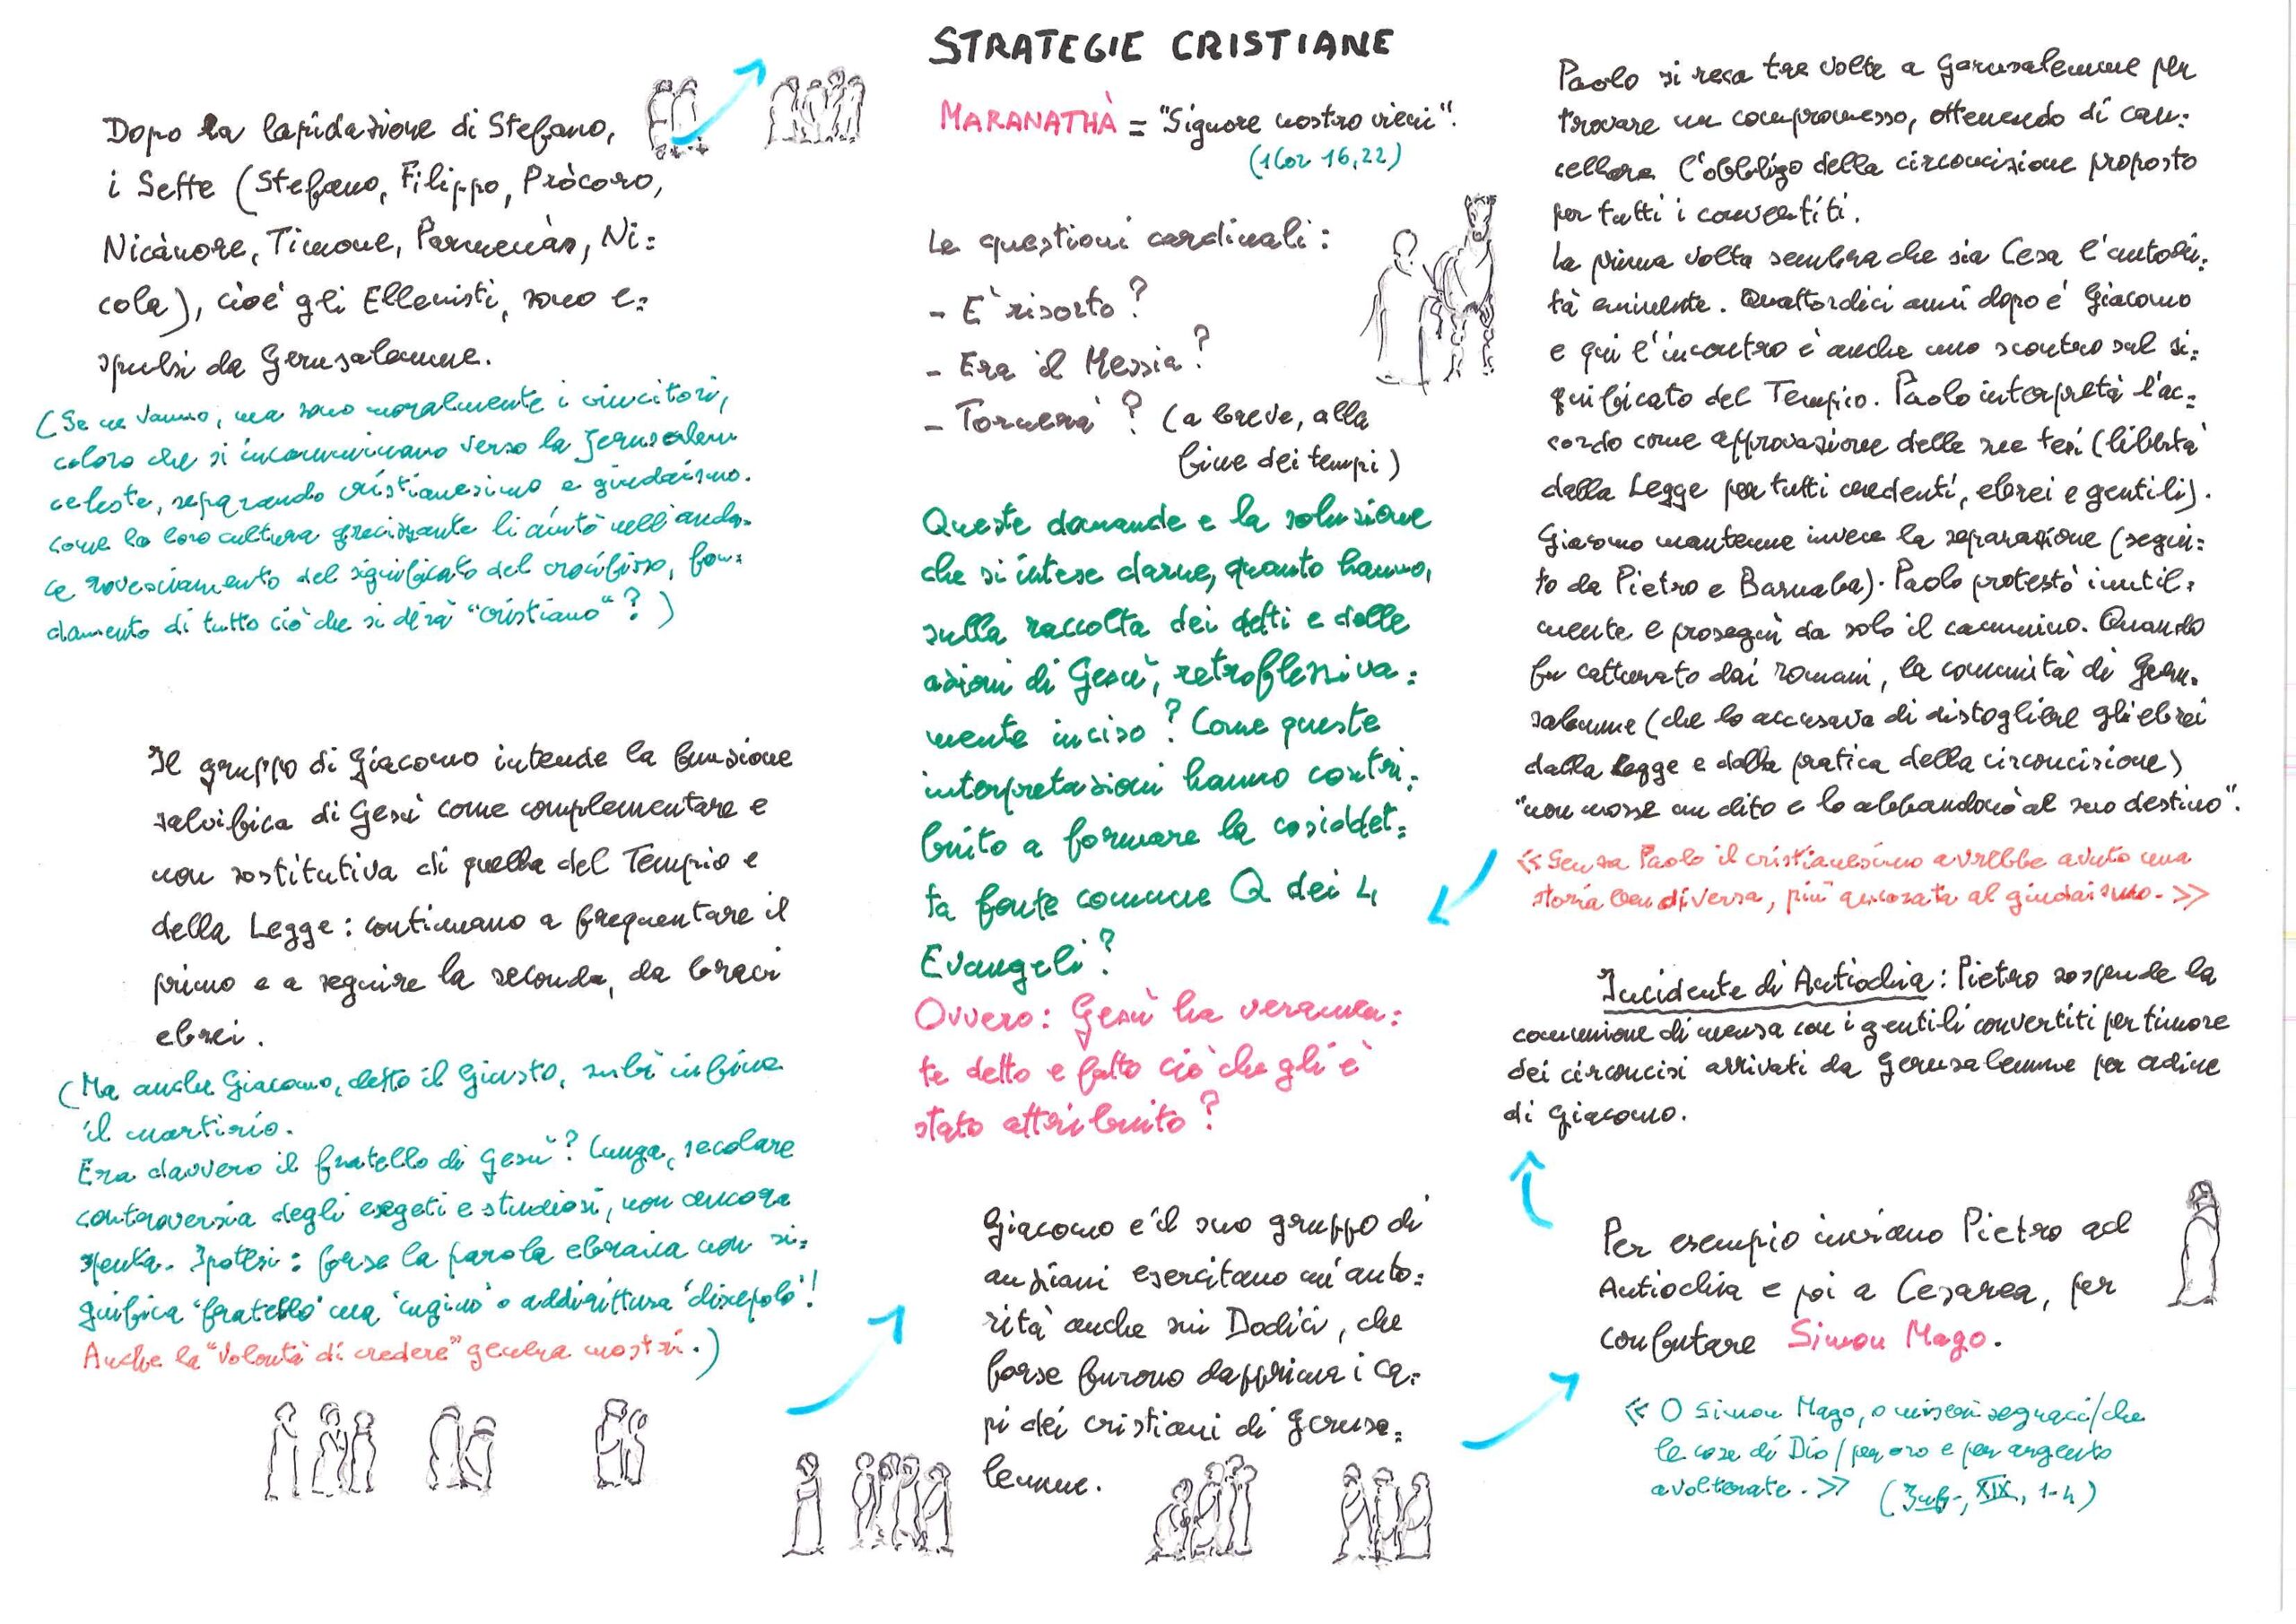 STRATEGIE CRISTIANE
Dopo la lapidazione di Stefano,
i Sette (Stefano, Filippo, Pròcoro,
Nicànore, Timone, Parmenàs, Ni=
cola), cioè gli Ellenisti, sono e=
spulsi da Gerusalemme.
(Se ne vanno, ma sono moralmente i vincitori,
coloro che si incamminano verso la Jerusalem
celeste, separando cristianesimo e giudaismo.
Come la loro cultura grecizzante li aiutò nell'auda=
ce rovesciamento del significato del crocifisso, fon=
damento di tutto ciò che si dirà "cristiano"?)
Il gruppo di Giacomo intende la funzione
salvifica di Gesù come complementare e
non sostitutiva di quella del Tempio e
della Legge: continuano a frequentare il
primo e a seguire la seconda, da bravi
ebrei.
(Ma anche Giacomo, detto il Giusto, subì infine
il martirio.
Era davvero il fratello di Gesù? Lunga, secolare
controversia degli esegeti e studiosi, non ancora
spenta. Ipotesi: forse la parola ebraica non si=
gnifica 'fratello' ma 'cugino' o addirittura 'discepolo'!
Anche la "volontà di credere" genera mostri.)
MARANATHÀ = "Signore nostro vieni".
(1 Cor 16,22)
Le questioni cardinali:
- E' risorto?
- Era il Messia?
- Tornerà? (a breve, alla
fine dei tempi)
Queste domande e la soluzione
che si intese darne, quanto hanno,
sulla raccolta dei detti e delle
azioni di Gesù, retroflessiva=
mente inciso? Come queste
interpretazioni hanno contri=
buito a formare la cosiddet=
ta fonte comune Q dei 4
Evangeli?
Ovvero: Gesù ha veramen=
te detto e fatto ciò che gli è
stato attribuito?
Giacomo e il suo gruppo di
anziani esercitano un'auto=
rità anche sui Dodici, che
forse furono dapprima i ca=
pi dei cristiani di Gerusa=
lemme.
Paolo si reca tre volte a Gerusalemme per
trovare un compromesso, ottenendo di can=
cellare l'obbligo della circoncisione proposto
per tutti i convertiti.
La prima volta sembra che sia Cefa l'autori=
tà eminente. Quattordici anni dopo è Giacomo
e qui l'incontro è anche uno scontro sul si=
gnificato del Tempio. Paolo interpreta l'ac=
cordo come approvazione delle sue tesi (libertà
dalla Legge per tutti credenti, ebrei e gentili).
Giacomo mantenne invece la separazione (segui=
to da Pietro e Barnaba). Paolo protestò inutil=
mente e proseguì da solo il cammino. Quando
fu catturato dai romani, la comunità di Geru=
salemme (che lo accusava di distogliere gli ebrei
dalla Legge e dalla pratica della circoncisione)
"non mosse un dito e lo abbandonò al suo destino".
«Senza Paolo il cristianesimo avrebbe avuto una
storia ben diversa, più ancorata al giudaismo.»
Incidente di Antiochia: Pietro sospende la
comunione di mensa con i gentili convertiti per timore
dei circoncisi arrivati da Gerusalemme per ordine
di Giacomo.
Per esempio inviano Pietro ad
Antiochia e poi a Cesarea, per
confutare Simon Mago.
«O Simon Mago, o miseri seguaci/che
le cose di Dio/per oro e per argento
avolterate.» (Inf., XIX, 1-4)